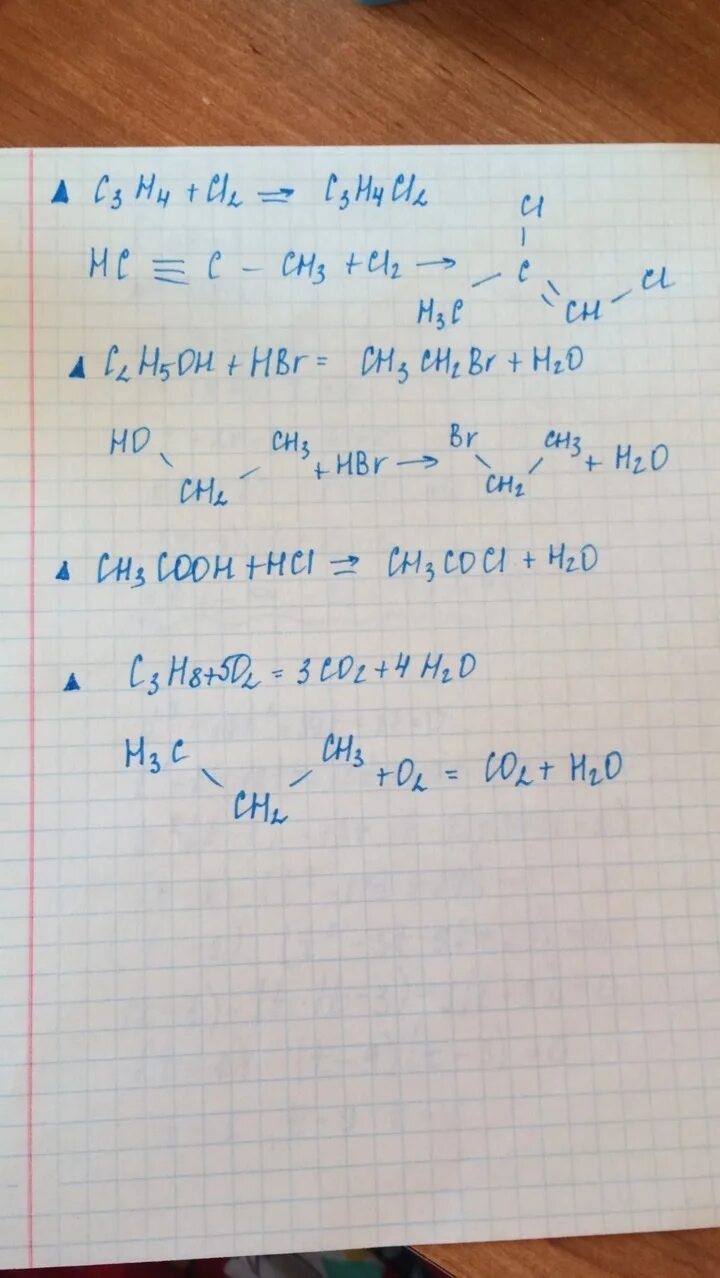 ▲ C₃H₄ + Cl₂ ⇒ C₃H₄Cl₂
Cl
HC ≡ C – CH₃ + Cl₂ → C Cl
H₃C CH
▲ C₂H₅OH + HBr = CH₃CH₂Br + H₂O
HO CH₃ + HBr → Br CH₃ + H₂O
CH₂ CH₂
▲ CH₃COOH + HCl ⇒ CH₃COCl + H₂O
▲ C₃H₈ + 5O₂ = 3CO₂ + 4H₂O
H₃C CH₃ + O₂ = CO₂ + H₂O
CH₂